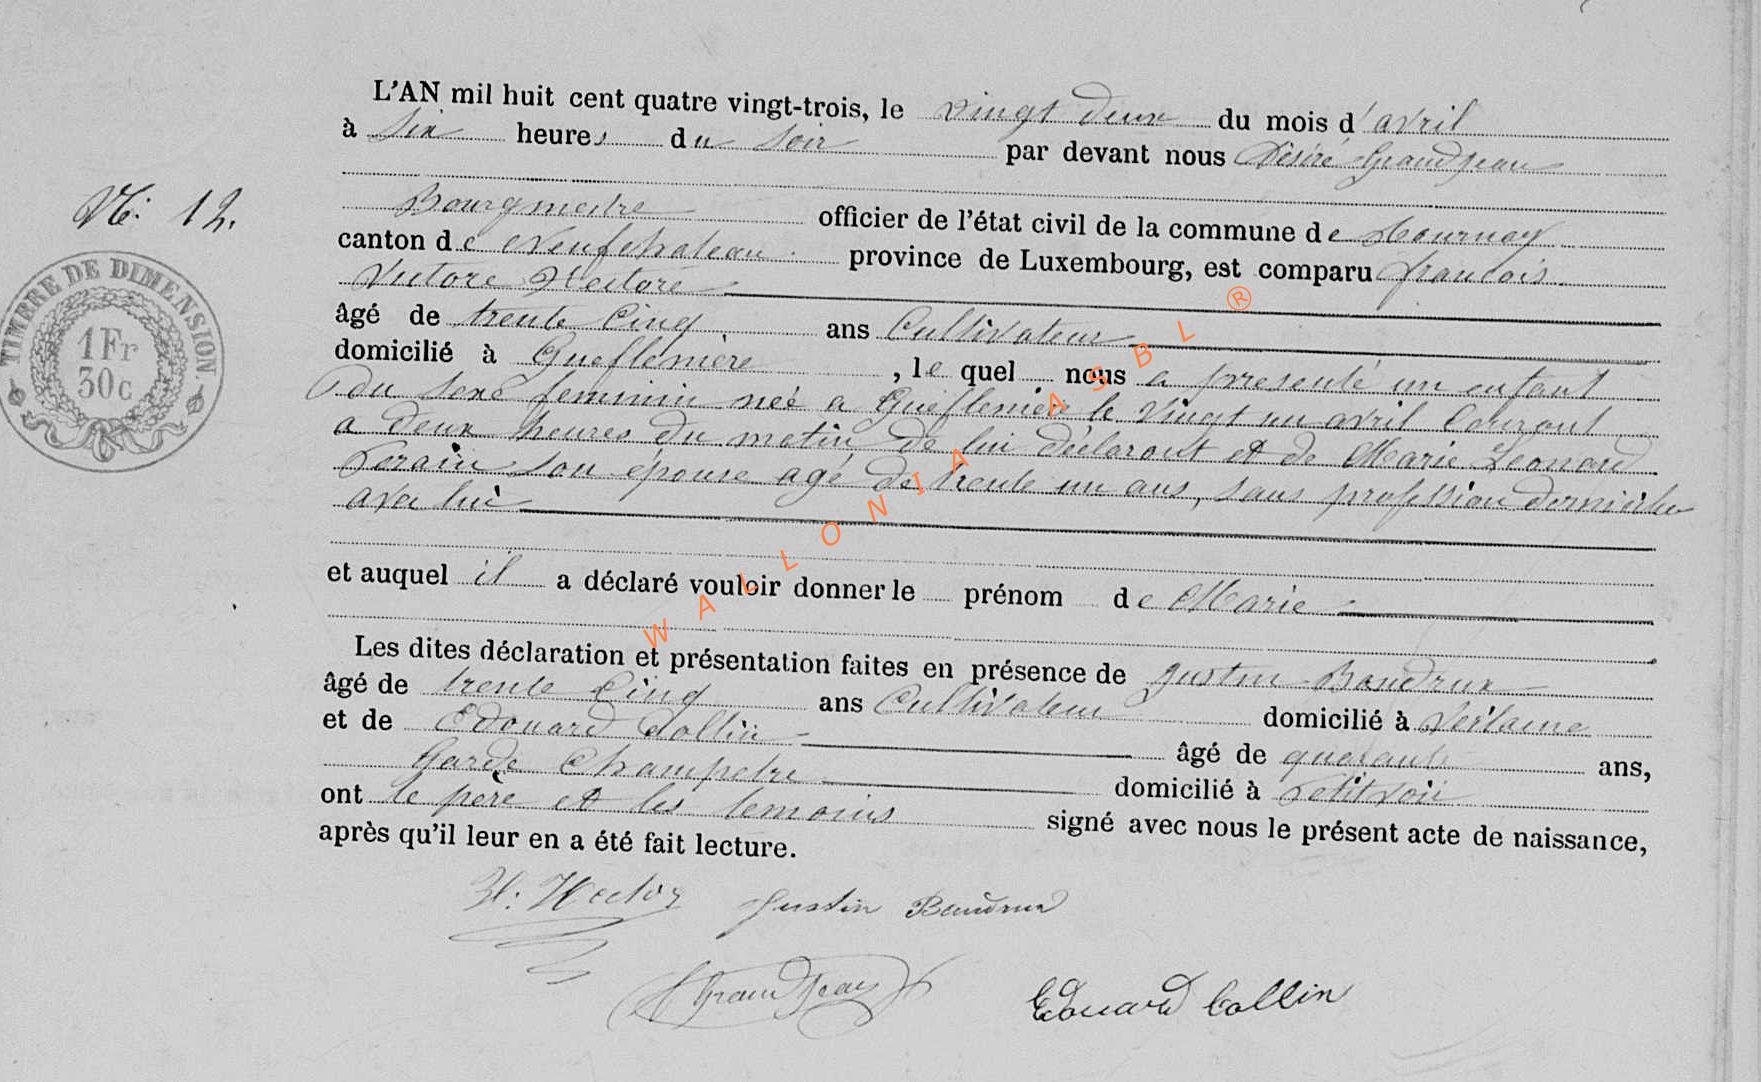 L'AN mil huit cent quatre vingt-trois, le vingt deux du mois d'avril
à six heures du soir par devant nous Désiré Grandjean
N°. 12.
Bourgmestre officier de l'état civil de la commune de Tournay
canton de Neufchateau province de Luxembourg, est comparu francois
Victore Hectore
âgé de trente Cinq ans Cultivateur
domicilié à , le quel nous a presenté un enfant
du sexe feminin neé a le vingt un avril Courant
a deux heures du matin de lui déclarant et de Marie Léonard
son épouse agé de trente un ans, sans profession
avec lui
et auquel il a déclaré vouloir donner le prénom de Marie
Les dites déclaration et présentation faites en présence de Justin Baudrux
âgé de trente Cinq ans Cultivateur domicilié à Verlaine
et de Edouard Collin âgé de quarante ans,
Garde Champetre domicilié à Petitvoir
ont le père et les temoins signé avec nous le présent acte de naissance,
après qu'il leur en a été fait lecture.
H. Hector Justin Baudrux
GrandJean Edouard Collin
TIMBRE DE DIMENSION
1 Fr
30c
WALLONIA ASBL ®